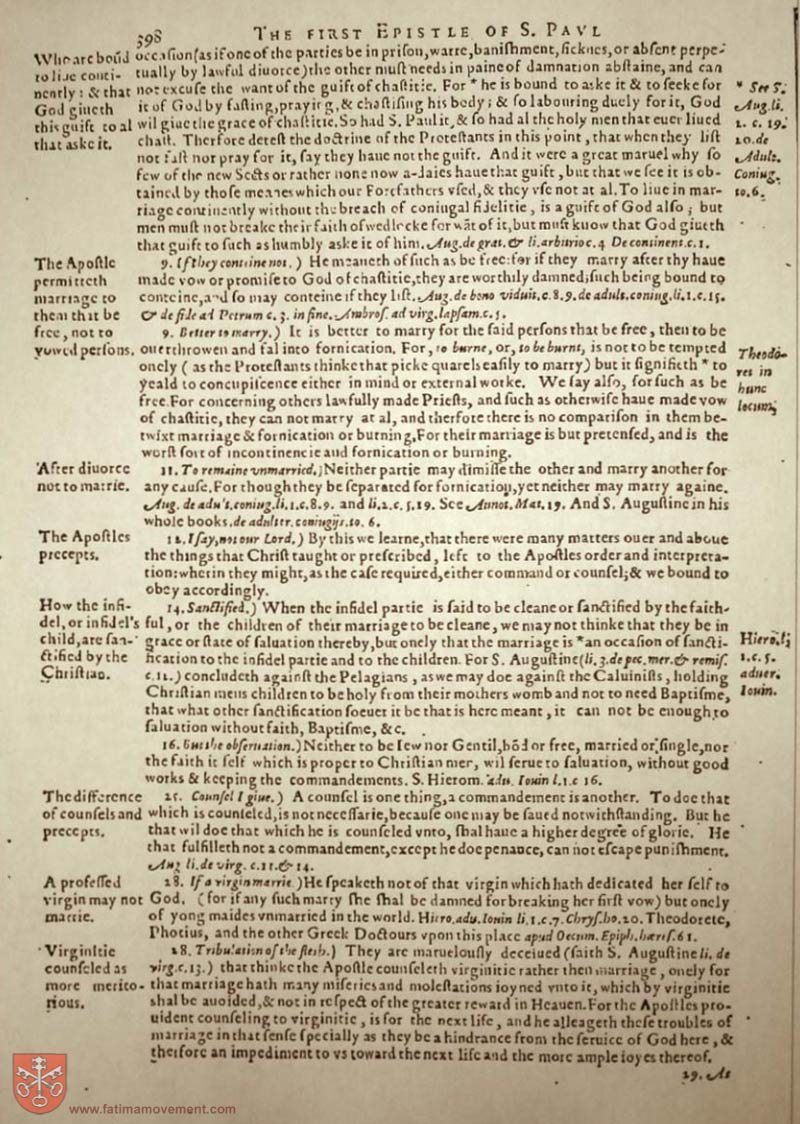 598
THE FIRST EPISTLE OF S. PAVL
Who are boũd
to liue conti-
nently: & that
God giueth
this guift to al
that aske it.
occasion (as if one of the parties be in prison, warre, banishment, sicknes, or absent perpe-
tually by lawful diuorce) the other must needs in paine of damnation abstaine, and can
not excuse the want of the guift of chastitie. For * he is bound to aske it & to seeke for
it of God by fasting, praying, & chastising his body; & so labouring duely for it, God
wil giue the grace of chastitie. So had S. Paul it, & so had al the holy men that euer liued
chast. Therfore detest the doctrine of the Protestants in this point, that when they list
not fast nor pray for it, say they haue not the guift. And it were a great maruel why so
few of the new Sects or rather none now a-daies haue that guift, but that we see it is ob-
tained by those meanes which our Forefathers vsed, & they vse not at al. To liue in mar-
riage continently without the breach of coniugal fidelitie, is a guift of God also; but
men must not breake their faith of wedlocke for wãt of it, but must know that God giueth
that guift to such as humbly aske it of him. Aug. de grat. & li. arbit. c. 4 De continent. c. 1.
* See S.
Aug. li.
2. c. 19.
20. de
Adult.
Coniug.
to. 6.
The Apostle
permitteth
marriage to
them that be
free, not to
vowed persons.
9. If they conteine not.) He meaneth of such as be free: for if they marry after thy haue
made vow or promise to God of chastitie, they are worthily damned; such being bound to
conteine, and so may conteine if they list. Aug. de bono viduit. c. 8. 9. de adult. coniug. li. 1. c. 15.
& de fide ad Petrum c. 3. in fine. Ambros. ad virg. lapsam. c. 5.
9. Better to marry.) It is better to marry for the said persons that be free, then to be
ouerthrowen and fal into fornication. For, to burne, or, to be burnt, is not to be tempted
onely (as the Protestants thinke that picke quarels easily to marry) but it signifieth * to
yeald to concupiscence either in mind or external worke. We say also, for such as be
free. For concerning others lawfully made Priests, and such as otherwise haue made vow
of chastitie, they can not marry at al, and therfore there is no comparison in them be-
twixt marriage & fornication or burning. For their marriage is but pretensed, and is the
worst sort of incontinencie and fornication or burning.
Theodo-
ret in
hunc
locum;
After diuorce
not to marrie.
11. To remaine vnmarried.) Neither partie may dimisse the other and marry another for
any cause. For though they be separated for fornication, yet neither may marry againe.
Aug. de adu's. coniug. li. 1. c. 8. 9. and li. 2. c. 5. 19. See Annot. Mat. 19. And S. Augustine in his
whole books. de adulter. coniugijs. to. 6.
The Apostles
precepts.
12. I say, not our Lord.) By this we learne, that there were many matters ouer and aboue
the things that Christ taught or prescribed, left to the Apostles order and interpreta-
tion: wherin they might, as the case required, either command or counsel; & we bound to
obey accordingly.
How the infi-
del, or infidel's
child, are san-
ctified by the
Christian.
14. Sanctified.) When the infidel partie is said to be cleane or sanctified by the faith-
ful, or the children of their marriage to be cleane, we may not thinke that they be in
grace or state of saluation thereby, but onely that the marriage is * an occasion of sancti-
fication to the infidel partie and to the children. For S. Augustine (li. 3. de pec. mer. & remiss.
c. 12.) concludeth against the Pelagians, as we may doe against the Caluinists, holding
Christian mens children to be holy from their mothers womb and not to need Baptisme,
that what other sanctification soeuer it be that is here meant, it can not be enough to
saluation without faith, Baptisme, &c.
Hiero. li;
1. c. 5.
aduer.
Iouin.
16. But the obseruation.) Neither to be Iew nor Gentil, bõd or free, married or single, nor
the faith it self which is proper to Christian men, wil serue to saluation, without good
works & keeping the commandements. S. Hierom. adu. Iouin l. 1. c 16.
The difference
of counsels and
precepts.
25. Counsel I giue.) A counsel is one thing, a commandement is another. To doe that
which is counseled, is not necessarie, because one may be saued notwithstanding. But he
that wil doe that which he is counseled vnto, shal haue a higher degree of glorie. He
that fulfilleth not a commandement, except he doe penance, can not escape punishment.
Aug li. de virg. c. 15. & 14.
A professed
virgin may not
marrie.
28. If a virgin marrie) He speaketh not of that virgin which hath dedicated her self to
God. (for if any such marry she shal be damned for breaking her first vow) but onely
of yong maides vnmarried in the world. Hiero. adu. Iouin li. 1. c. 7. Chrys. ho. 20. Theodorete,
Photius, and the other Greek Doctours vpon this place apud Oecum. Epiph. hæres. 61.
Virginitie
counseled as
more merito-
rious.
28. Tribulation of the flesh.) They are maruelously deceiued (saith S. Augustine li. de
virg. c. 13.) that thinke the Apostle counseleth virginitie rather then marriage, onely for
that marriage hath many miseries and molestations ioyned vnto it, which by virginitie
shal be auoided, & not in respect of the greater reward in Heauen. For the Apostles pro-
uident counseling to virginitie, is for the next life, and he alleageth these troubles of
marriage in that sense specially as they be a hindrance from the seruice of God here, &
therfore an impediment to vs toward the next life and the more ample ioyes thereof.
29. As
www.fatimamovement.com